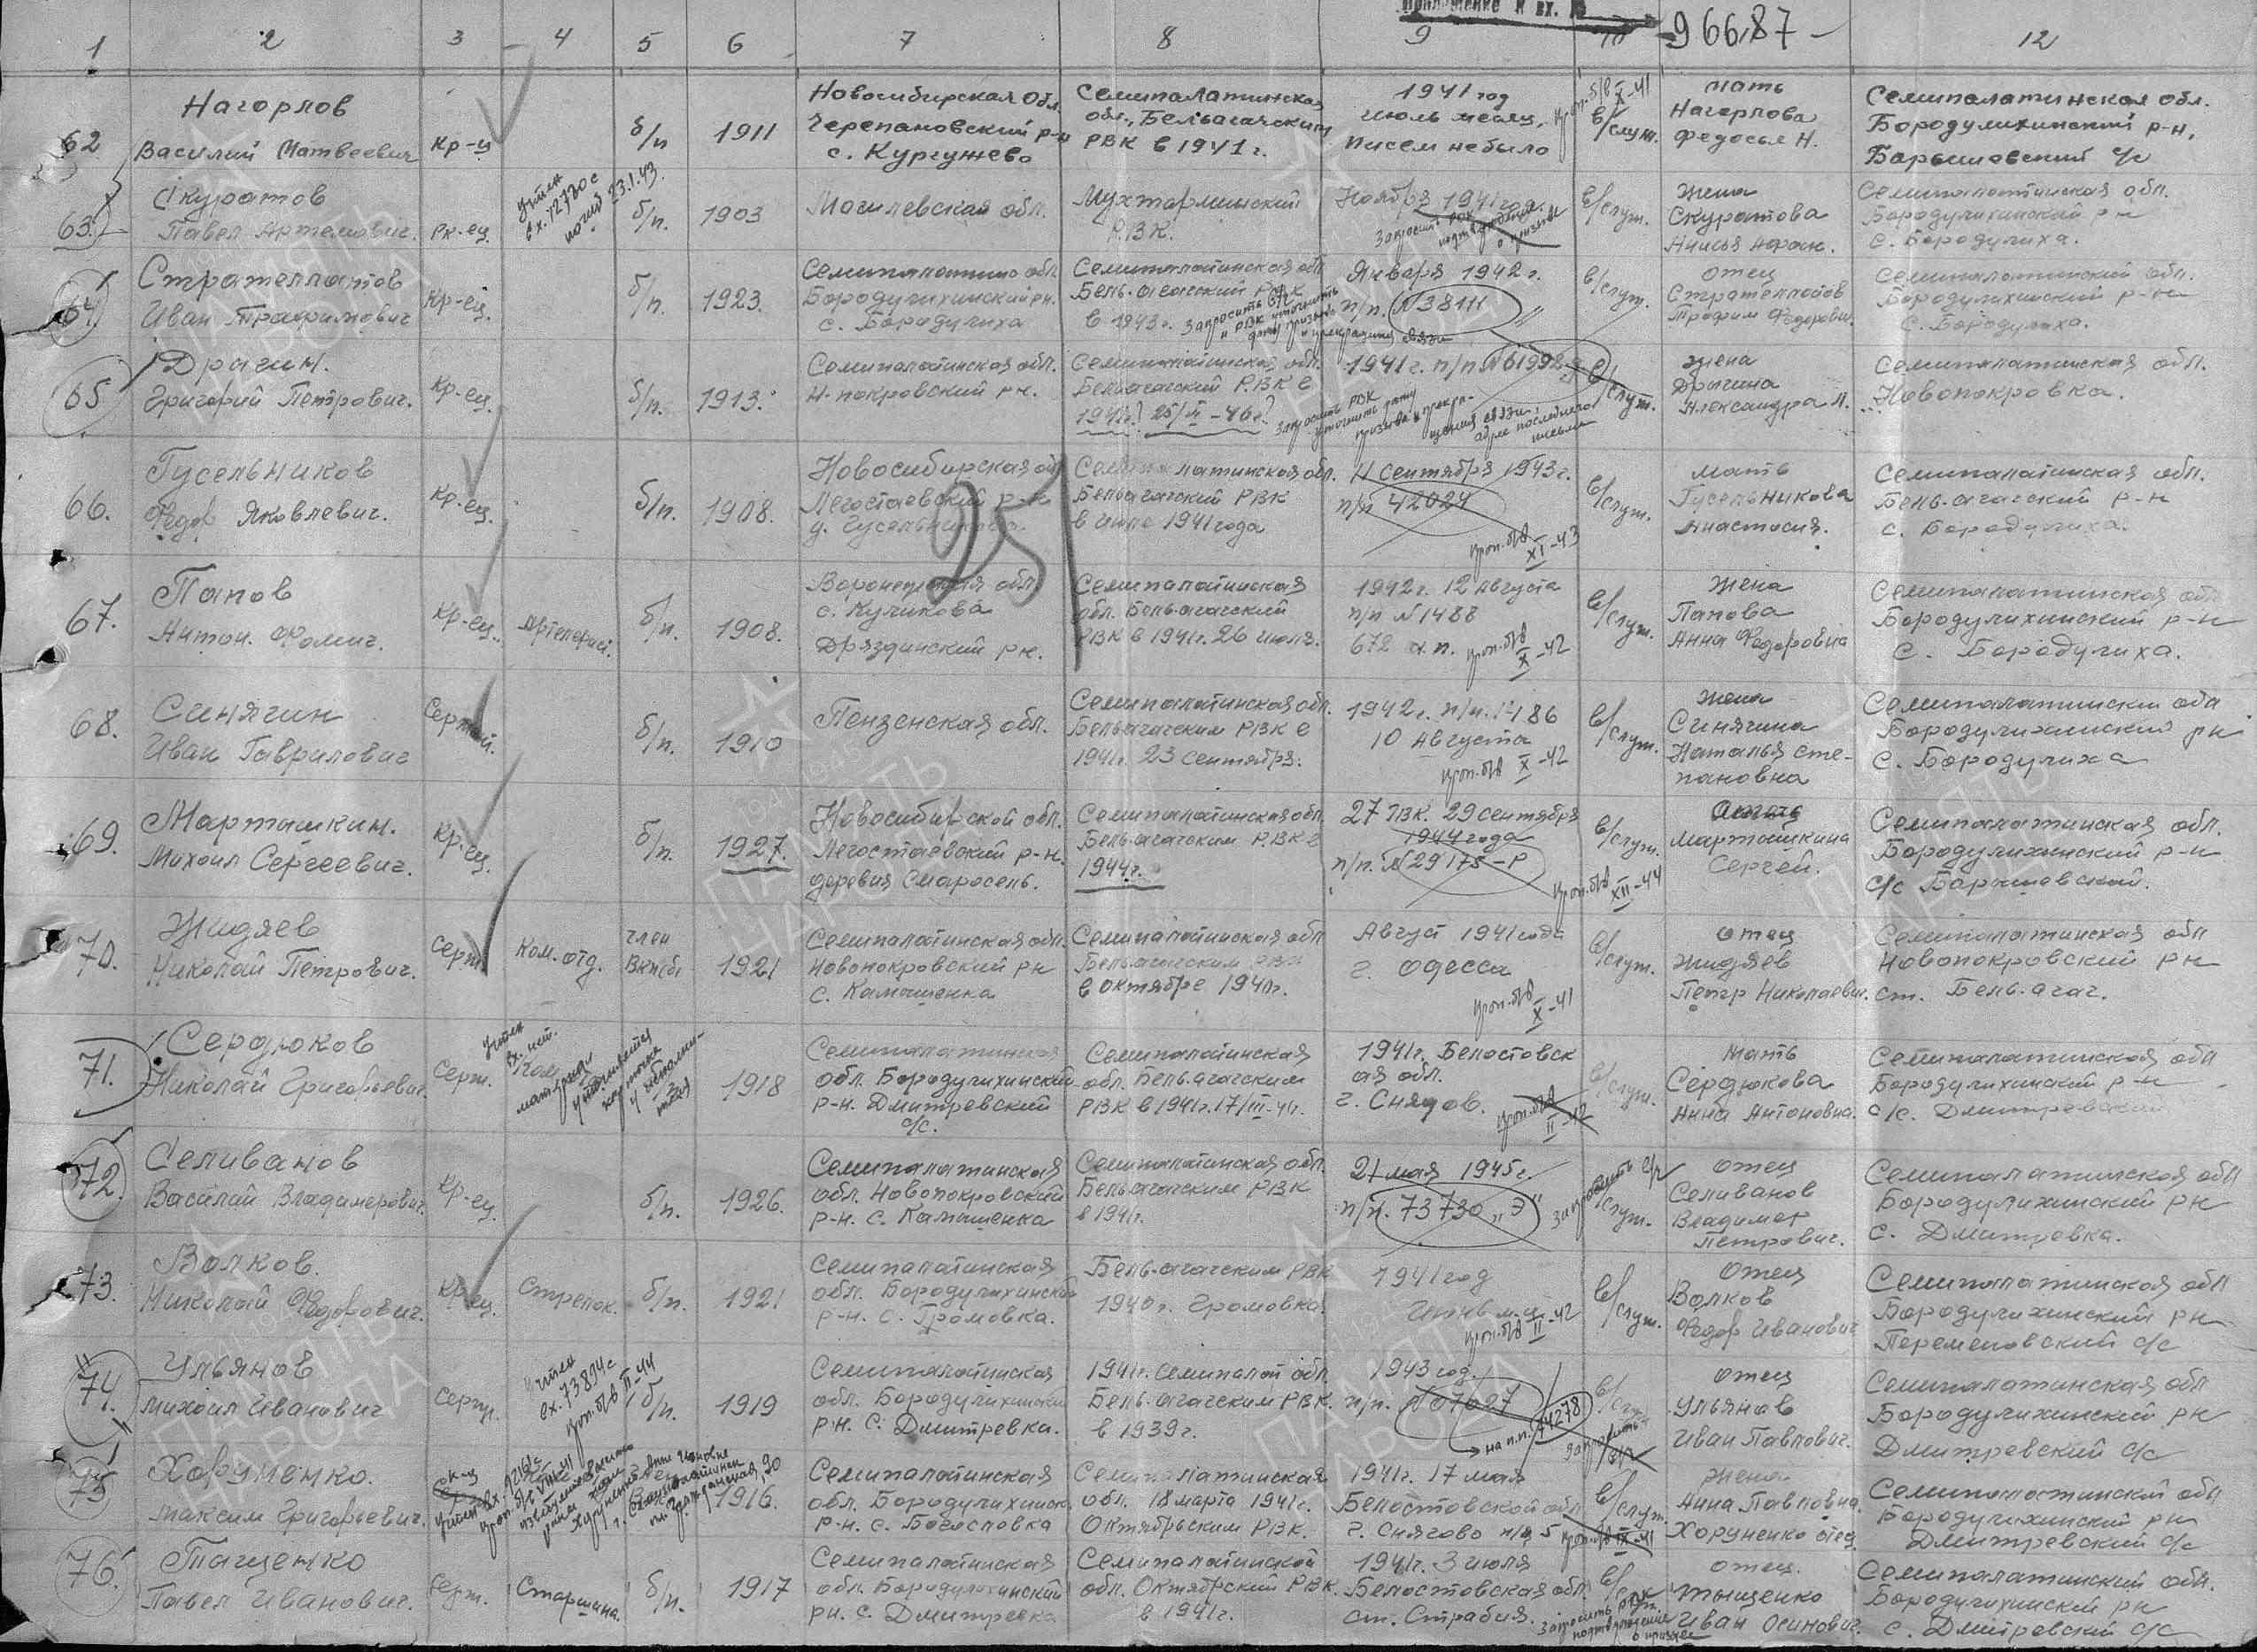 96687
1 2 3 4 5 6 7 8 9 10 12
62
Нагорлов
Василий Матвеевич
Кр-ц
б/п
1911
Новосибирская обл.
Черепановский р-н
с. Кургужево
Семипалатинская
обл., Бельагачским
РВК в 1941 г.
1941 год
июль месяц,
писем не было
в/служ.
мать
Нагорлова
Федосья Н.
Семипалатинская обл.
Бородулихинский р-н,
Барышовский с/с
63.
Скуратов
Павел Артемович.
Кр-ец.
учтен
вх. 72730с
погиб 23.1.43.
б/п.
1903
Могилевская обл.
Мухтарминский
Р.В.К.
Ноябрь 1941 год.
Запросить РВК
подтверждение
о призыве
в/служ.
жена
Скуратова
Анисья Афан.
Семипалатинская обл.
Бородулихинский р-н
с. Бородулиха.
64.
Стратеплатов
Иван Трафимович
Кр-ец.
б/п.
1923.
Семипалатинс обл
Бородулихинский рн.
с. Бородулиха
Семипалатинская обл
Бель-агачский РВК
в 1943 г.
Января 1942 г.
п/п. №38111
в/служ.
отец
Трофим Федорович.
Семипалатинский обл.
Бородулихинский р-н
с. Бородулиха.
65
Драгин.
Григорий Петрович.
Кр-ец.
б/п.
1913.
Семипалатинская обл.
Н-покровский рн.
Семипалатинская обл.
Бельагачский Р.ВК в
1941г.? 25/II-46г?
1941 г. п/п №61992
Запросить РВК
уточнить дату
призыва и прекра-
щения связи,
адрес последнего
письма
в/служ.
жена
Драгина
Александра П.
Семипалатинская обл.
Новопокровка.
66.
Гусельников
Федор Яковлевич.
Кр-ец.
б/п.
1908.
Новосибирская об
Легостаевский р-н
д. Гусельниково.
Семипалатинская обл.
Бельагачский РВК
в июле 1941 года
11 сентября 1943 г.
п/п 42024
проп. б/в
XI-43
в/служ.
мать
Гусельникова
Анастасия.
Семипалатинская обл.
Бель-агачский р-н
с. Бородулиха.
67.
Папов
Антон. Фомич.
Кр-ец.
Артелерист.
б/п.
1908.
Воронежская обл
с. Куликова
Дрязгинский рн.
Семипалатинская
обл. Бель-агачский
РВК в 1941г. 26 июля.
1942 г. 12 августа
п/п №1488
672 а.п.
проп. б/в
X-42
в/служ.
жена
Папова
Анна Федоровна
Семипалатинская обл
Бородулихинский р-н
с. Бородулиха.
68.
Синягин
Иван Гаврилович
Сержан.
б/п.
1910
Пензенская обл.
Семипалатинская обл.
Бельагачским РВК в
1941г. 23 сентября.
1942 г. п/п. 1486
10 августа
проп. б/в X-42
в/служ.
жена
Синягина
Наталья Сте-
пановна
Семипалатинский обл
Бородулихинский рн
с. Бородулиха
69.
Марташкин.
Михаил Сергеевич.
Кр-ец.
б/п.
1927.
Новосибирской обл.
Легостаевский р-н.
деревня Смаросель.
Семипалатинская обл.
Бель-агачским Р.ВК в
1944г.
29 сентября
1944 года
п/п. №29175-Р
проп. б/в
XII-44
в/служ.
Марташкина
Сергей.
Семипалатинская обл.
Бородулихинский р-н
с/с Барышевский.
70.
Жидяев
Николай Петрович.
Серж.
Ком. отд.
член
ВКП(б)
1921
Семипалатинская обл.
Новопокровский рн
с. Камышенка
Семипалатинская обл
Бельагачским РВК
в октябре 1940г.
Август 1941 года
г. Одесса
проп. б/в
X-41
в/служ.
отец
Жидяев
Петр Николаевич.
Семипалатинская обл
Новопокровский рн
ст. Бель-агач.
71.
Сердюков
Николай Григорьевич.
Серж.
1918
Семипалатинская
обл. Бородулихинский
р-н. Дмитревский
с/с.
Семипалатинская
обл. Бель-агачским
РВК в 1941г. 17/III-41г.
1941г. Белостовск
ая обл.
г. Снядов.
в/служ.
мать
Сердюкова
Анна Антоновна.
Семипалатинская обл
Бородулихинский р-н
с/с. Дмитревский
72.
Селиванов
Василий Владимерович.
Кр-ец.
б/п.
1926.
Семипалатинская
обл. Новопокровский
р-н. с. Камышенка
Семипалатинская обл.
Бельагачским РВК
в 194г.
21 мая 1945г.
п/п. 73730 „Э"
служ.
отец
Селиванов
Владимер
Петрович.
Семипалатинская обл
Бородулихинский рн
с. Дмитревка.
73.
Волков.
Николай Федорович.
Кр-ец.
Стрелок.
б/п.
1921
Семипалатинская
обл. Бородулихинский
р-н. с. Громовка.
Бель-агачским РВК
1940г. Громовка.
1941 год
проп. б/в II-42
в/служ.
отец
Волков
Федор Иванович
Семипалатинская обл
Бородулихинский рн
Переменовский с/с
74.
Ульянов
Михаил Иванович
Серж.
учтен
вх. 73894с
проп. б/в II-44
б/п.
1919
Семипалатинская
обл. Бородулихинский
рн. с. Дмитревка.
1941г. Семипалат обл.
Бель-агачским РВК.
в 1939г.
1943 год.
п/п. №07027
на п.п. 44278
отец
Ульянов
Иван Павлович.
Семипалатинская обл
Бородулихинский рн
Дмитревский с/с
75
Хоруненко.
Максим Григорьевич.
1916.
Семипалатинская
обл. Бородулихинск.
р-н. с. Богословка
Семипалатинская
обл. 18 марта 1941г.
Октябрьским РВК.
1941г. 17 мая
Белостовской обл
г. Снягово п/я 5
проп. б/в IX-41
в/служ.
жена
Анна Павловна.
Хоруненко отец
Семипалатинской обл
Бородулихинский рн
Дмитревский с/с
76.
Тащенко
Павел Иванович.
Серж.
Старшина.
б/п.
1917
Семипалатинская
обл. Бородулихинский
рн. с. Дмитревка
Семипалатинской
обл. Октябрский РВК.
в 1941г.
1941г. 3 июля
Белостовская обл.
ст. Страбия.
Запросить РВК
подтверждение
о призыве
отец.
Тыщенко
Иван Осипович.
Семипалатинский обл.
Бородулихинский рн
с. Дмитревский с/с
251
ПАМЯТЬ
НАРОДА